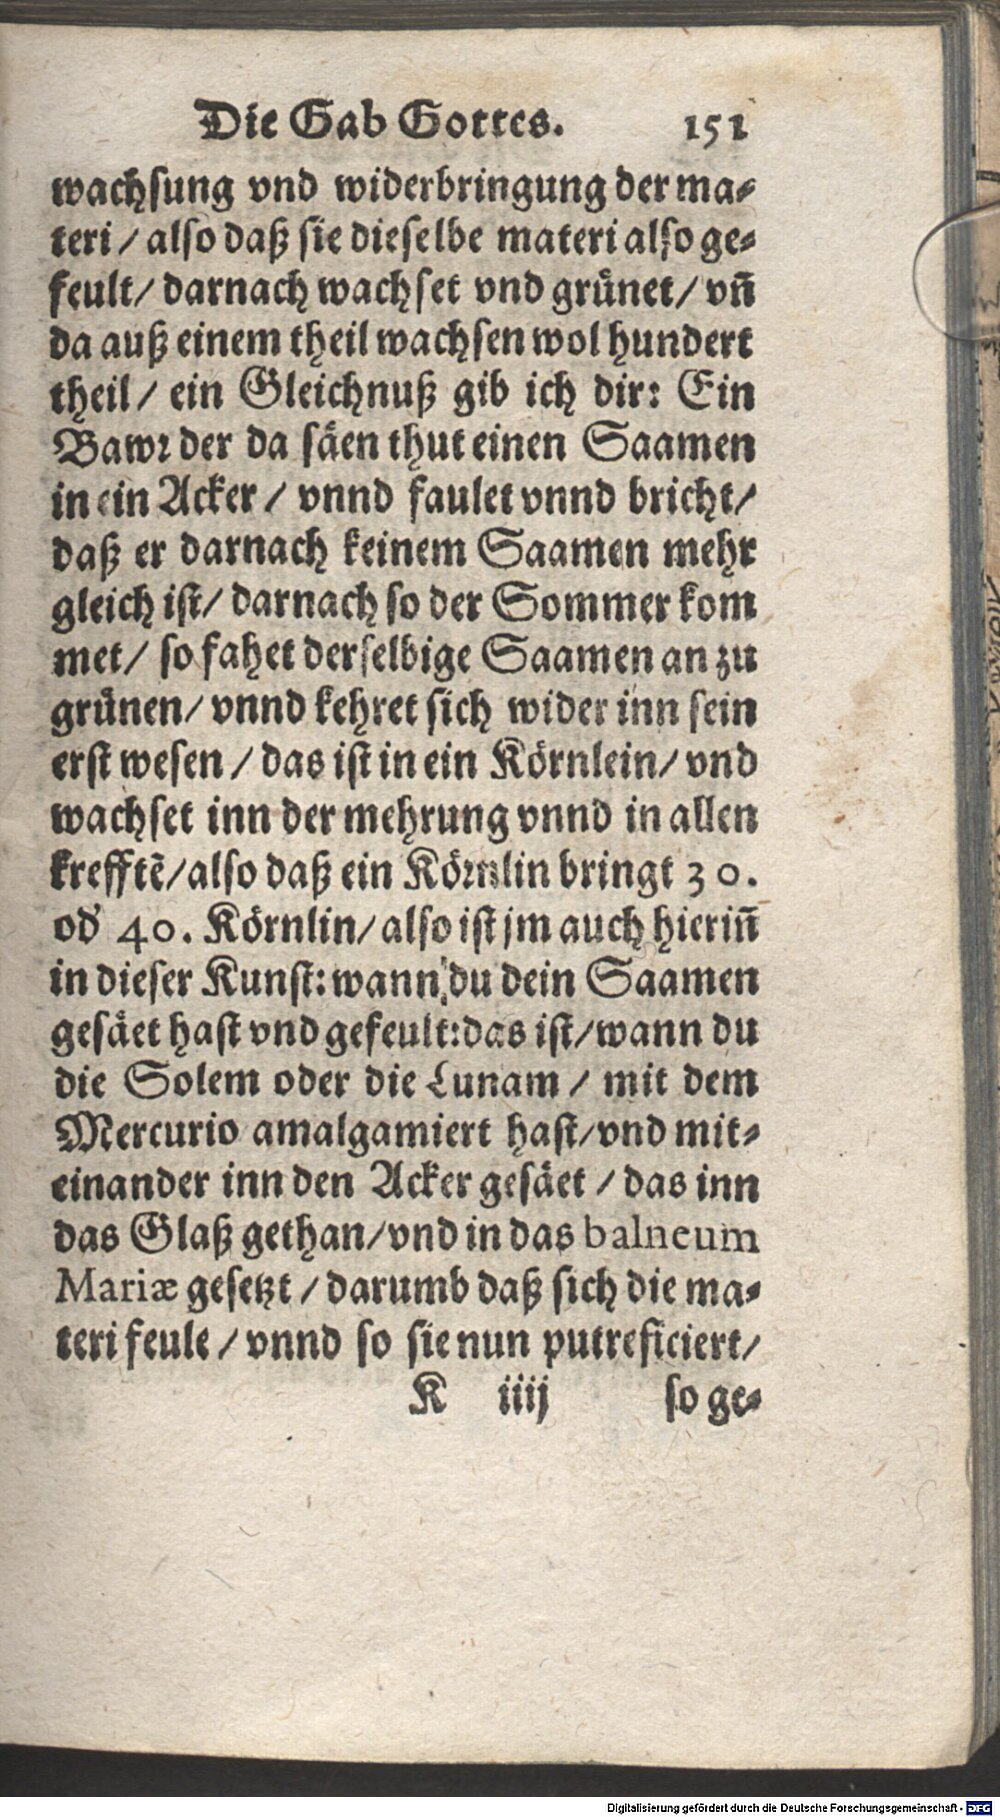 Die Gab Gottes. 151
wachsung vnd widerbringung der ma-
teri / also daß sie dieselbe materi also ge-
feult / darnach wachset vnd grůnet / vn̄
da auß einem theil wachsen wol hundert
theil / ein Gleichnuß gib ich dir: Ein
Bawr der da såen thut einen Saamen
in ein Acker / vnnd faulet vnnd bricht /
daß er darnach keinem Saamen mehr
gleich ist / darnach so der Sommer kom
met / so fahet derselbige Saamen an zu
grůnen / vnnd kehret sich wider inn sein
erst wesen / das ist in ein Körnlein / vnd
wachset inn der mehrung vnnd in allen
krefftē / also daß ein Körnlin bringt 30.
od' 40. Körnlin / also ist jm auch hierin̄
in dieser Kunst: wann du dein Saamen
gesået hast vnd gefeult: das ist / wann du
die Solem oder die Lunam / mit dem
Mercurio amalgamiert hast / vnd mit-
einander inn den Acker gesået / das inn
das Glaß gethan / vnd in das balneum
Mariæ gesetzt / darumb daß sich die ma-
teri feule / vnnd so sie nun putreficiert /
K iiij so ge-
Digitalisierung gefördert durch die Deutsche Forschungsgemeinschaft - DFG